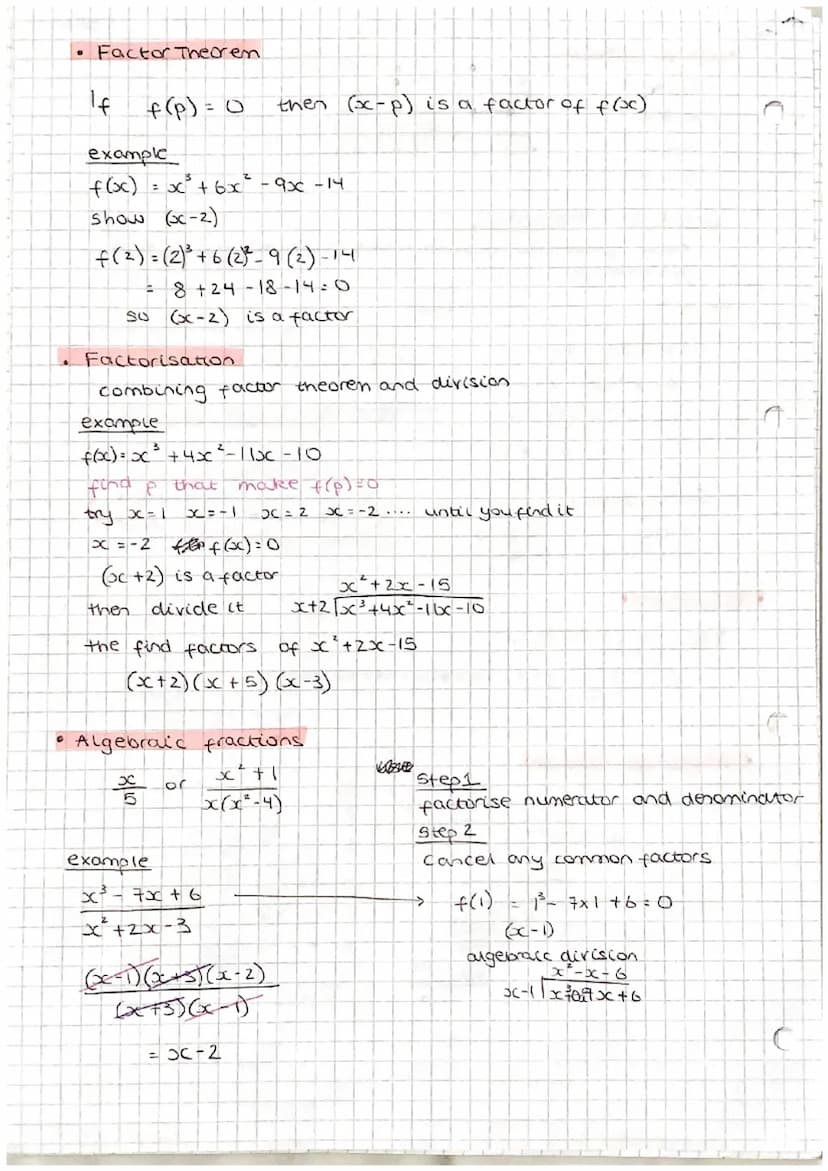 • Factor Theorem
If f(p) = 0 then (x-p) is a factor of f(x)
example
f(x) = x³ + 6x² - 9x - 14
show (x-2)
f(2) = (2)³ + 6(2)² - 9(2) - 14
= 8 + 24 - 18 - 14 = 0
so (x-2) is a factor
• Factorisation
combining factor theorem and division
example
f(x) = x³ + 4x² - 11x - 10
find p that make f(p) = 0
try x=1 x=-1 x=2 x=-2 .... until you find it
x = -2 f(x) = 0
(x+2) is a factor
x² + 2x - 15
then divide it x+2 √x³+4x²-11x-10
the find factors of x² + 2x - 15
(x+2)(x+5)(x-3)
• Algebraic fractions
x/5 or x²+1/x(x²-4)
Step 1
factorise numerator and denominator
Step 2
cancel any common factors
example
x³ - 7x + 6 / x² + 2x - 3 → f(1) = 1³ - 7x1 + 6 = 0
(x-1)
algebraic division
x² - x - 6
(x-1)(x+3)(x-2) / (x+3)(x-1)
= x-2